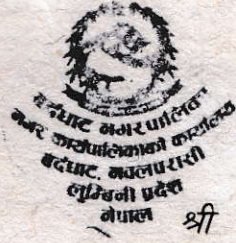 बर्दघाट नगरपालिका
नगर कार्यपालिकाको कार्यालय
बर्दघाट, नवलपरासी
लुम्बिनी प्रदेश
नेपाल
श्री